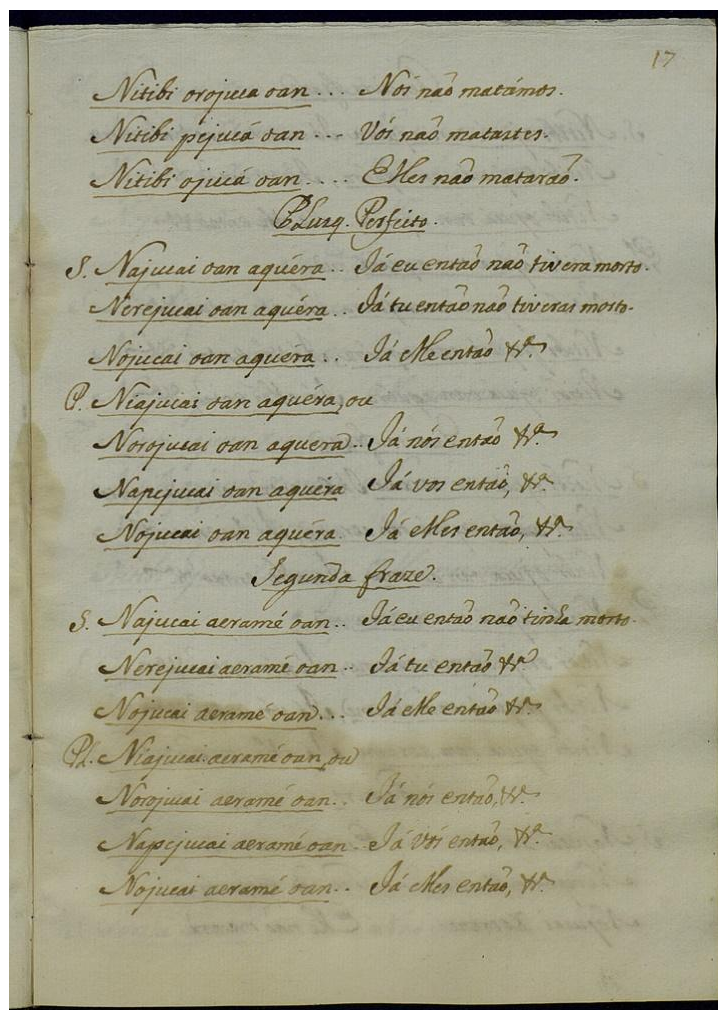 17
Nitibi orojuca oan ... Nós não matámos.
Nitibi pejucá oan ... Vós não matastes.
Nitibi ojucá oan .... Elles não matarão.
Plusq. Perfeito.
S. Najucai oan aquéra .. Já eu então não tivera morto.
Nerejucai oan aquéra .. Já tu então não tiveras morto.
Nojucai oan aquera ... Já elle então &ª.
P. Niajucai oan aquéra, ou
Norojucai oan aquera .. Já nós então &ª.
Napejucai oan aquéra Já vos então, &ª.
Nojucai oan aquéra. Já elles então, &ª.
Segunda fraze.
S. Najucai aeramé oan .. Já eu então não tinha morto.
Nerejucai aeramé oan .. Já tu então &ª
Nojucai aeramé oan ... Já elle então &ª.
Pl. Niajucai aeramé oan, ou
Norojucai aeramé oan .. Já nós então, &ª.
Napejucai aeramé oan . Já vós então, &ª.
Nojucai aeramé oan .. Já elles então, &ª.